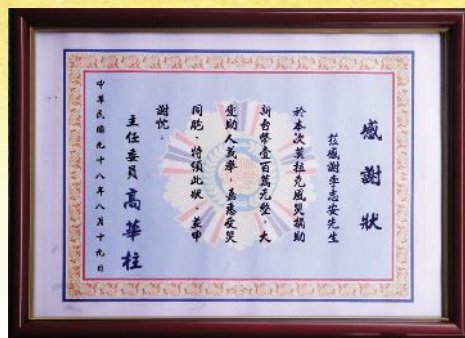 感謝狀
茲感謝李志安先生
於本次莫拉克風災捐助
新台幣壹百萬元整，大
愛助人義舉，嘉惠受災
同胞，特頒此狀，並申
謝忱。
主任委員 高華柱
中華民國九十八年八月十九日